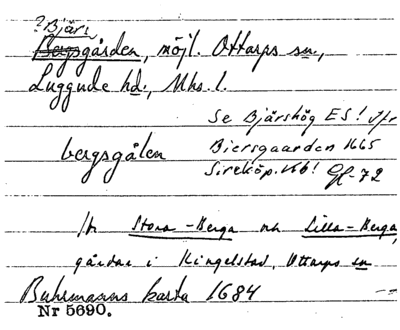 ? Bjärs
Bergsgården, möjl. Ottarps sn.,
Luggude hd., Mhs. l.
Se Bjärshög ES! Jfr
bergsgålen Biersgaarden 1665
Sireköp. 166! Gl-72
Stora-Berga och Lilla-Berga,
gårdar i Kingelstad, Ottarps sn
Buhrmanns karta 1684
Nr 5690.